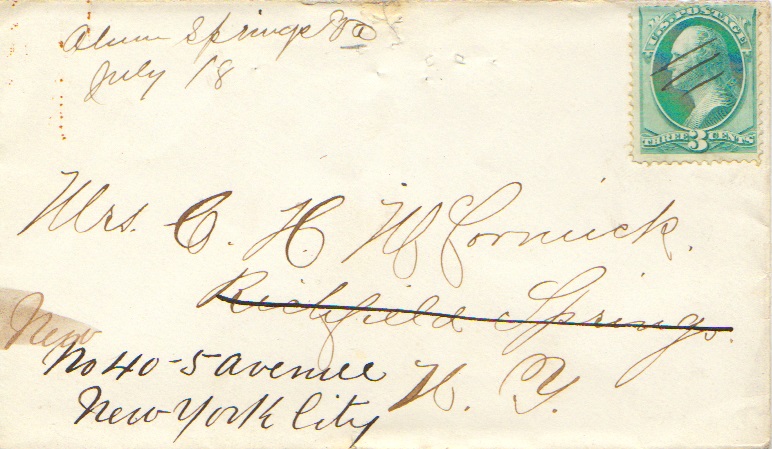 Alum Springs Va
July 18
U.S. POSTAGE
THREE 3 CENTS
Mrs. C. H. McCormick.
Richfield Springs.
N. Y.
New
No 40 - 5 avenue
New York City